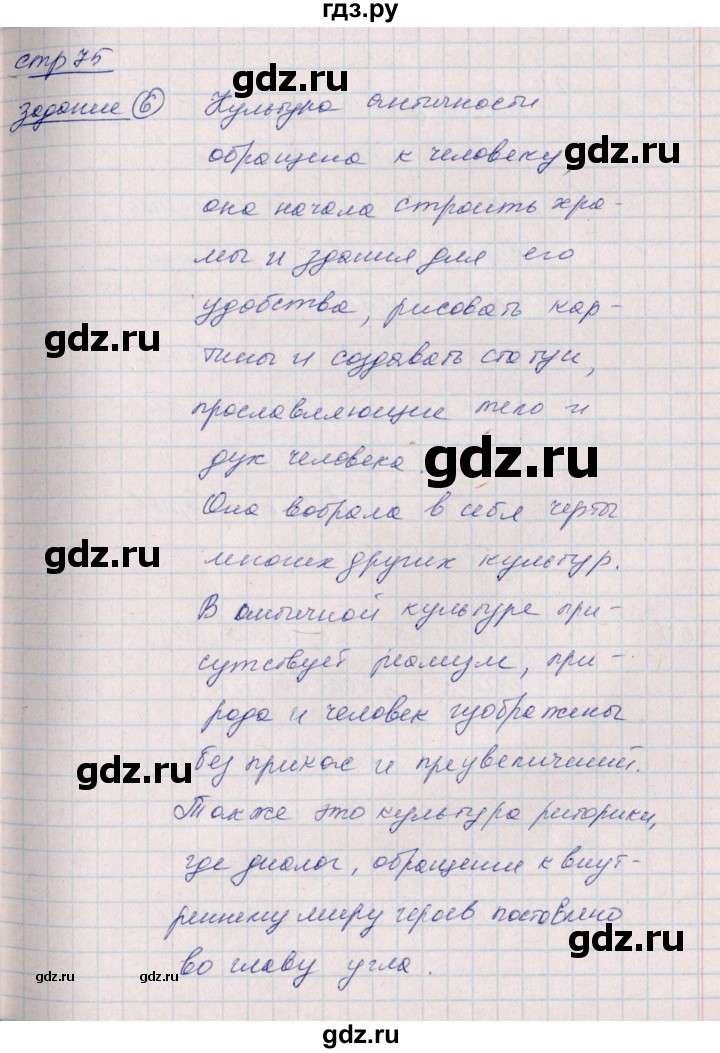 гдз.ру
стр 75
gdz.ru
задание 6 Культура античности
обращена к человеку, gdz.ru
она начала строить хра-
мы и здания для его
удобства, рисовать кар-
gdz.ru
тины и создавать статуи,
прославляющие тело и
дух человека. gdz.ru
Она вобрала в себя черты
gdz.ru многих других культур.
В античной культуре при-
сутствует реализм, при-
рода и человек изображены
без прикас и преувеличений.
gdz.ru
Также это культура риторики,
где диалог, обращение к внут-
реннему миру героев поставлено
gdz.ru
во главу угла.
gdz.ru gdz.ru
gdz.ru